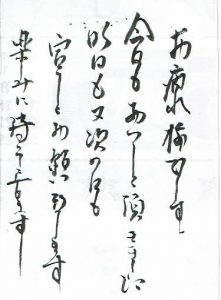 お疲れ様です
今日もあいしと頂きましに
明日も又次の日も
宜しくお願い致します
楽しみに待っております